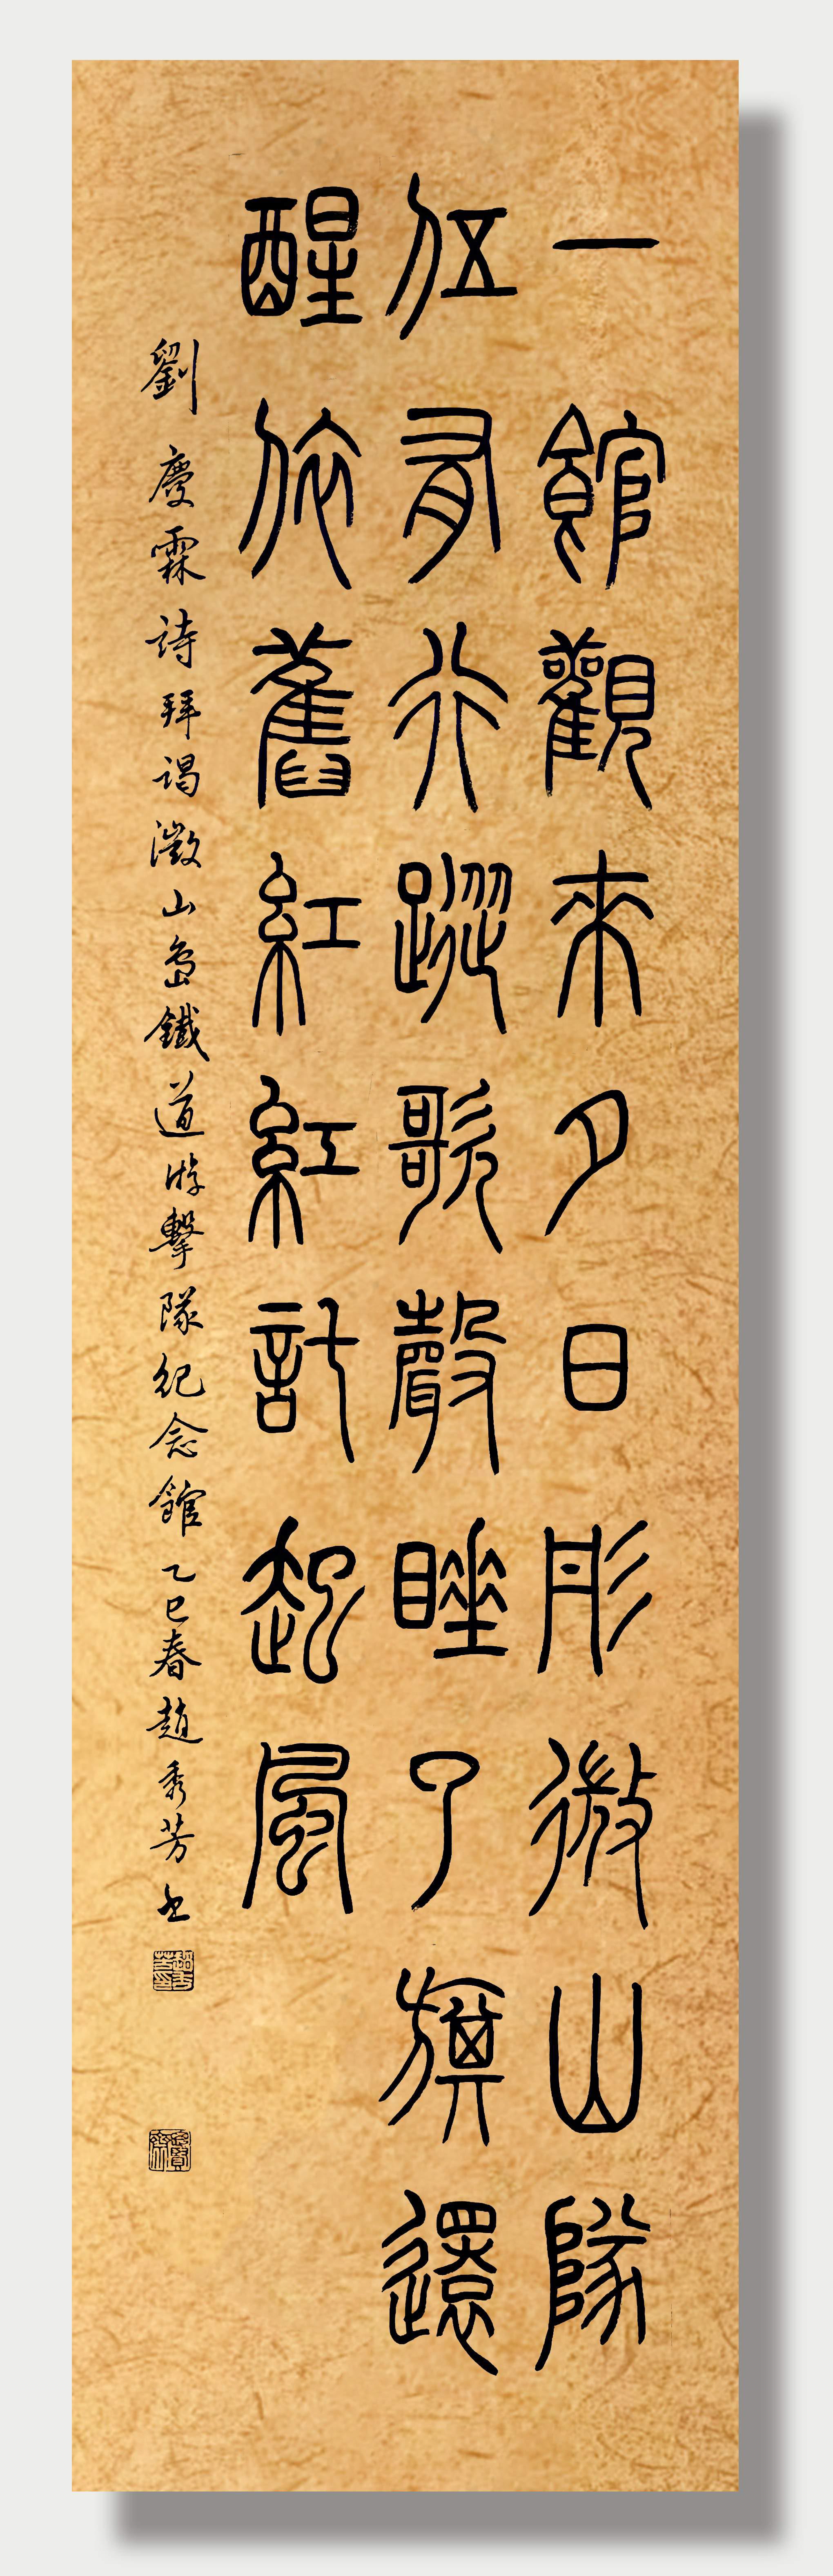 一館觀來夕日彤微山隊
伍有行蹤歌聲睡了旗還
醒依舊紅紅託起風
劉慶霖詩拜謁微山島鐵道游擊隊紀念館乙巳春趙秀芳书